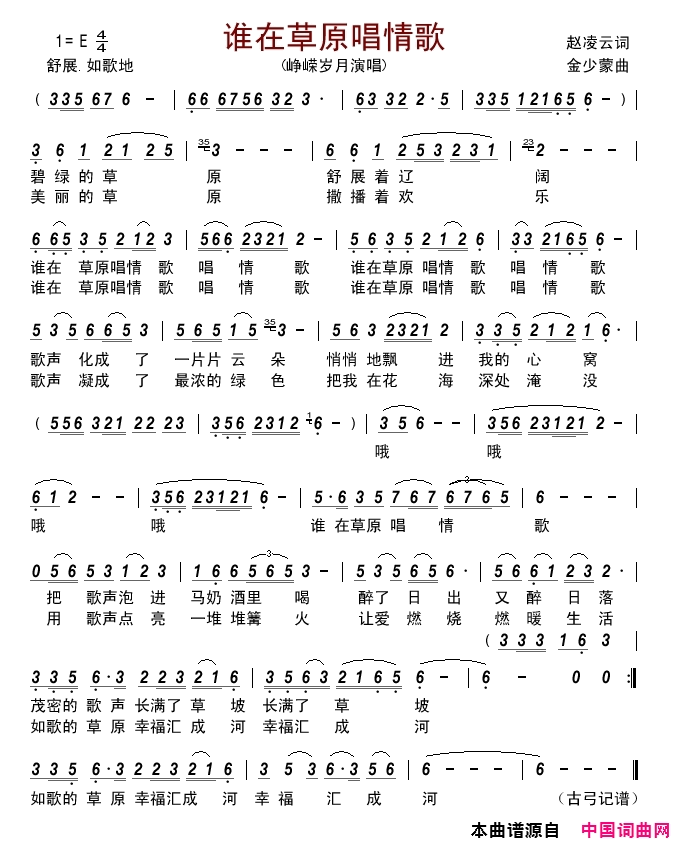 谁在草原唱情歌
1= E 4/4
赵凌云词
舒展.如歌地
(峥嵘岁月演唱)
金少蒙曲
( 3 3 5 6 7 6 - | 6 6 6 7 5 6 3 2 3 · | 6 3 3 2 2 · 5 | 3 3 5 1 2 1 6 5 6 - )
3 6 1 2 1 2 5 | 35 3 - - - | 6 6 1 2 5 3 2 3 1 | 23 2 - - -
碧绿的草 原 舒展着辽 阔
美丽的草 原 撒播着欢 乐
6 6 5 3 5 2 1 2 3 | 5 6 6 2 3 2 1 2 - | 5 6 3 5 2 1 2 6 | 3 3 2 1 6 5 6 -
谁在 草原唱情 歌 唱 情 歌 谁在草原 唱情 歌 唱 情 歌
谁在 草原唱情 歌 唱 情 歌 谁在草原 唱情 歌 唱 情 歌
5 3 5 6 6 5 3 | 5 6 5 1 5 35 3 - | 5 6 3 2 3 2 1 2 | 3 3 5 2 1 2 1 6 ·
歌声 化成 了 一片片 云 朵 悄悄 地飘 进 我的 心 窝
歌声 凝成 了 最浓的 绿 色 把我 在花 海 深处 淹 没
( 5 5 6 3 2 1 2 2 2 3 | 3 5 6 2 3 1 2 1 6 - ) | 3 5 6 - - | 3 5 6 2 3 1 2 1 2 -
哦 哦
6 1 2 - - | 3 5 6 2 3 1 2 1 6 - | 5 · 6 3 5 7 6 7 6 7 6 5 | 6 - - -
哦 哦 谁 在草原 唱 情 歌
0 5 6 5 3 1 2 3 | 1 6 6 5 6 5 3 | 5 3 5 6 5 6 · | 5 6 6 1 2 3 2 ·
把 歌声泡 进 马奶 酒里 喝 醉了 日 出 又 醉 日 落
用 歌声点 亮 一堆 堆篝 火 让爱 燃 烧 燃 暖 生 活
( 3 3 3 1 6 3
3 3 5 6 · 3 2 2 3 2 1 6 | 3 5 6 3 2 1 6 5 | 6 - - - | 6 - 0 0 :
茂密的 歌 声 长满了 草 坡 长满了 草 坡
如歌的 草 原 幸福汇 成 河 幸福汇 成 河
3 3 5 6 · 3 2 2 3 2 1 6 | 3 5 3 6 · 3 5 6 | 6 - - - | 6 - - -
如歌的 草 原 幸福汇成 河 幸 福 汇 成 河 (古弓记谱)
本曲谱源自 中国词曲网